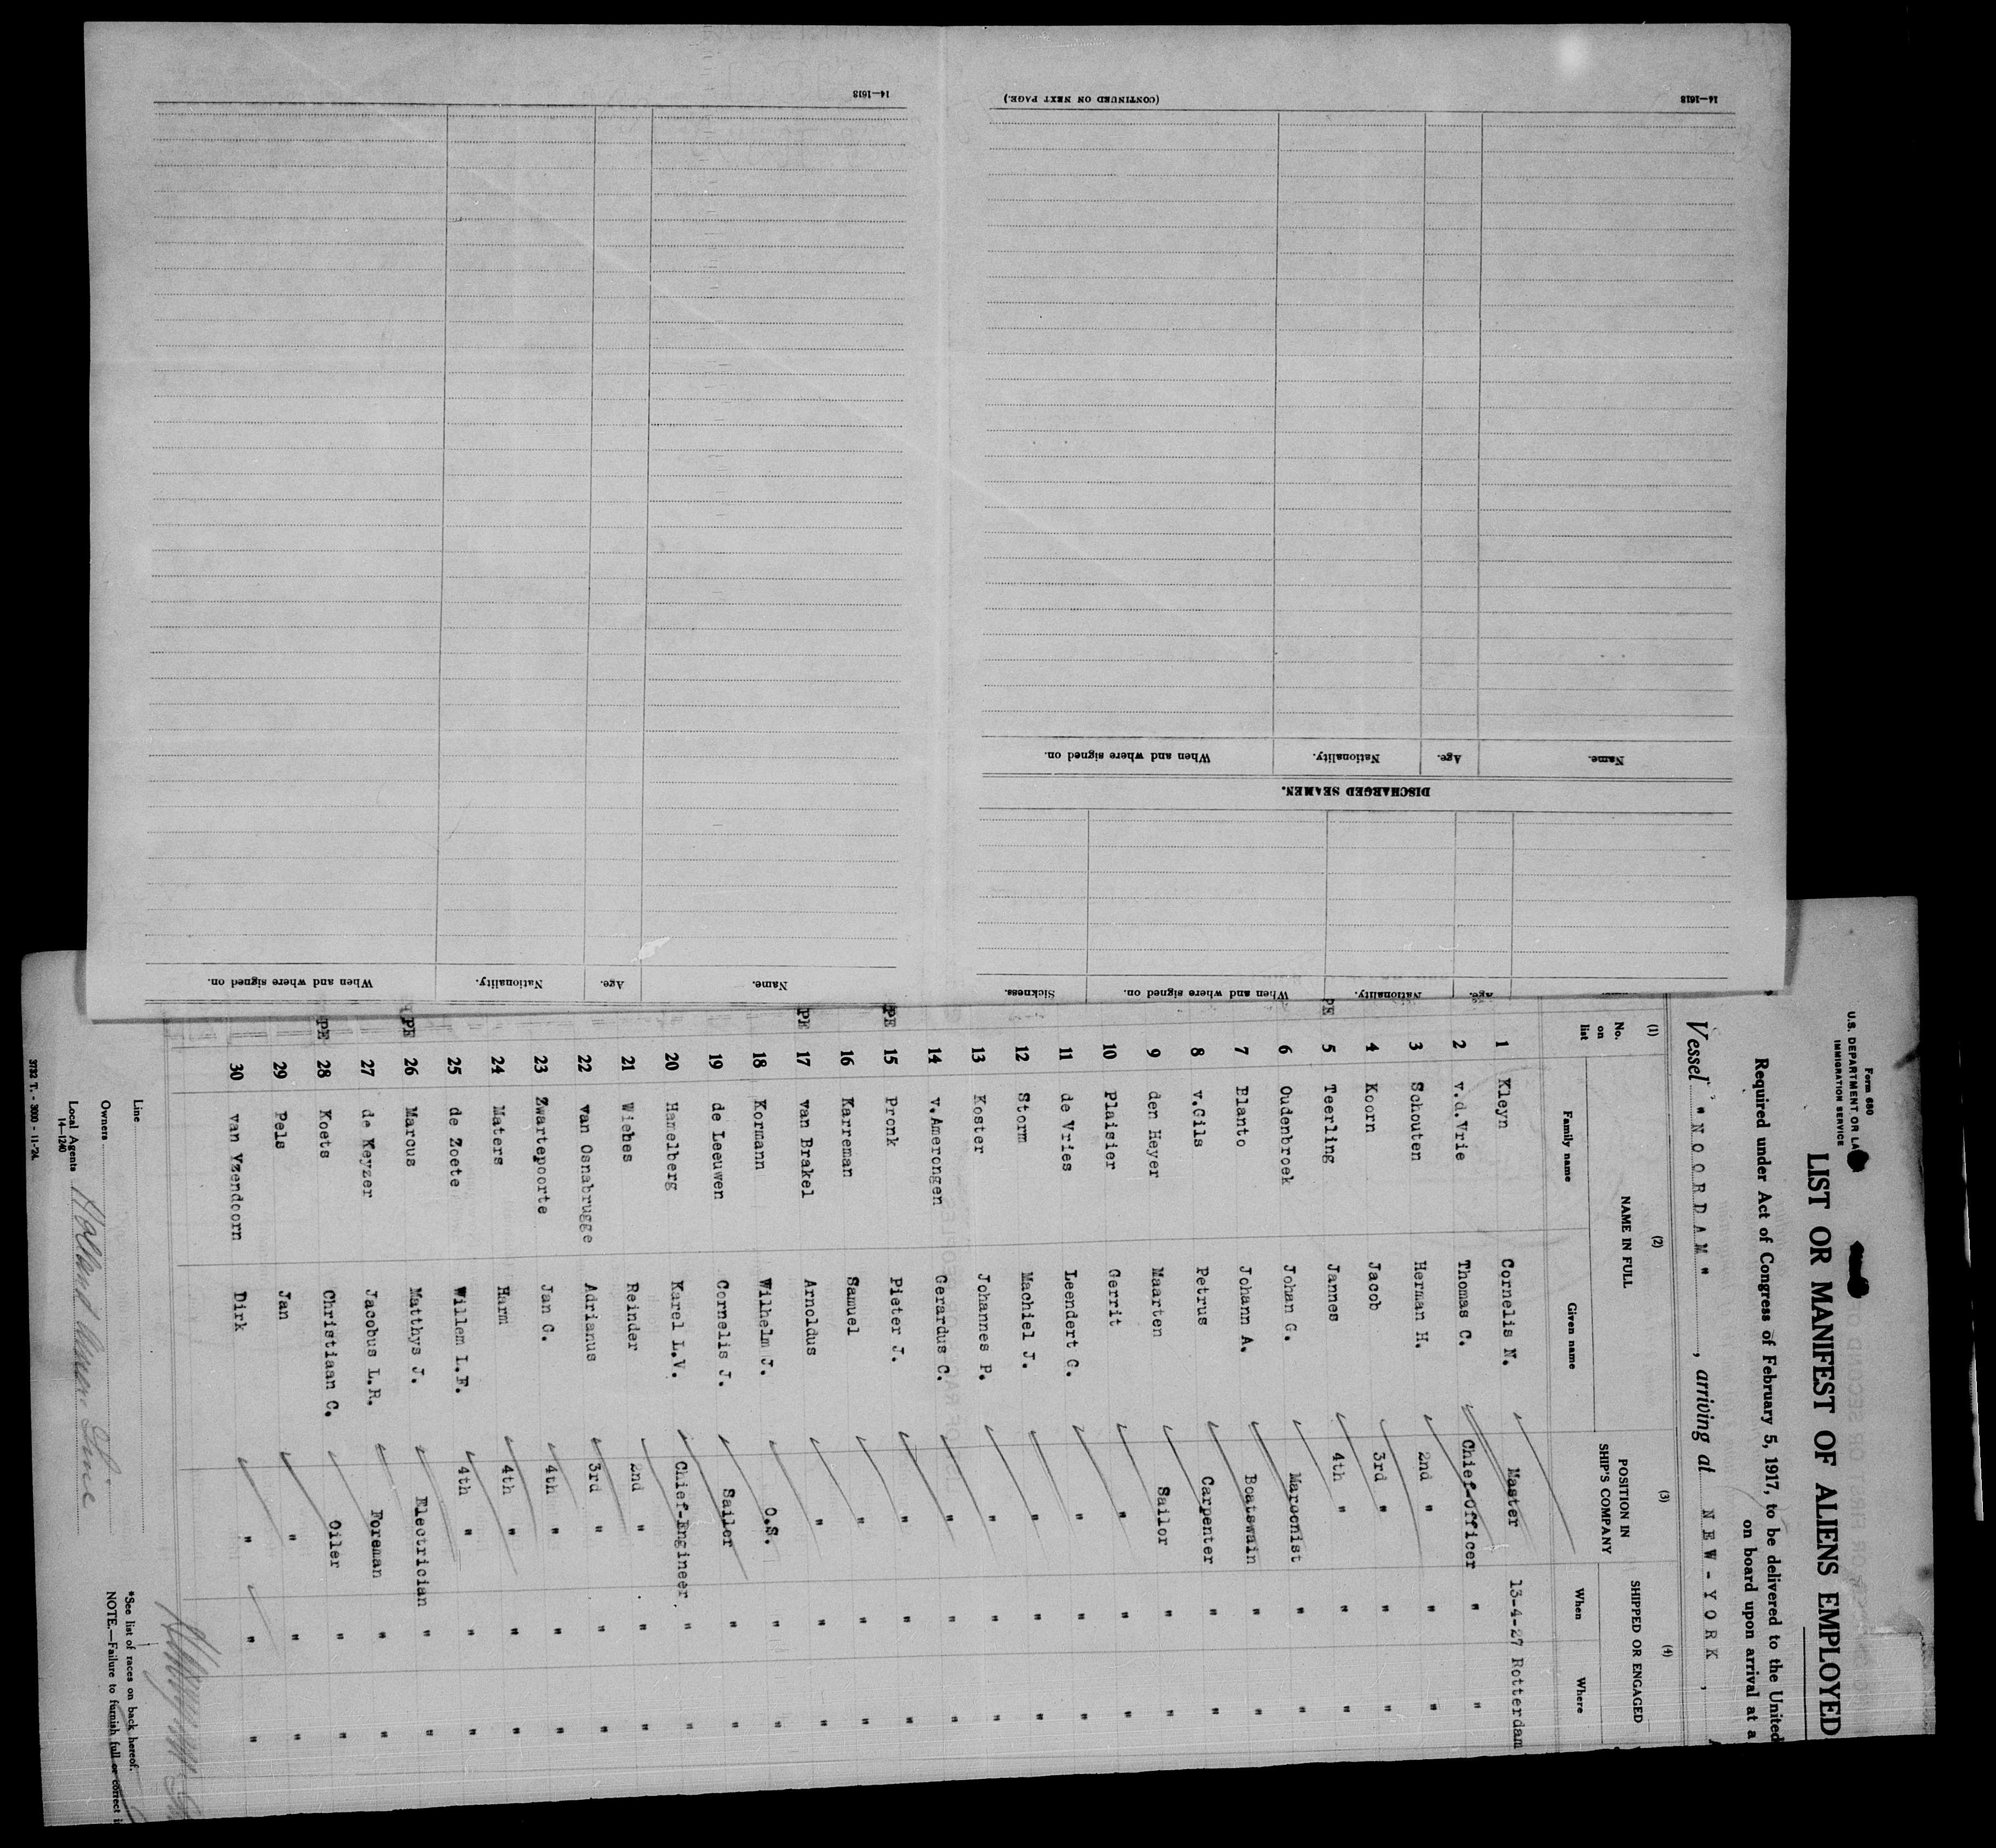 14—1618
(CONTINUED ON NEXT PAGE.)
14—1618
Name. Age. Nationality. When and where signed on.
DISCHARGED SEAMEN.
Age. Nationality. When and where signed on. Sickness.
Name. Age. Nationality. When and where signed on.
Form 680
U.S. DEPARTMENT OF LA
IMMIGRATION SERVICE
LIST OR MANIFEST OF ALIENS EMPLOYED
Required under Act of Congress of February 5, 1917, to be delivered to the United
on board upon arrival at a
Vessel "NOORDAM", arriving at NEW-YORK,
(1) (2) (3) (4)
No. on list NAME IN FULL POSITION IN SHIP'S COMPANY SHIPPED OR ENGAGED
Family name Given name When Where
1 Kleyn Cornelis N. Master 13-4-27 Rotterdam
2 v.d.Vrie Thomas C. Chief-Officer " "
3 Schouten Herman H. 2nd " " "
4 Koorn Jacob 3rd " " "
PE 5 Teerling Jannes 4th " " "
6 Oudenbroek Johan G. Marconist " "
7 Blanto Johann A. Boatswain " "
8 v.Gils Petrus Carpenter " "
9 den Heyer Maarten Sailor " "
10 Plaisier Gerrit " " "
11 de Vries Leendert G. " " "
12 Storm Machiel J. " " "
13 Koster Johannes P. " " "
14 v.Amerongen Gerardus C. " " "
PE 15 Pronk Pieter J. " " "
16 Karreman Samuel " " "
PE 17 van Brakel Arnoldus " " "
18 Kormann Wilhelm J. O.S. " "
19 de Leeuwen Cornelis J. Sailor " "
20 Hamelberg Karel L.V. Chief-Engineer " "
21 Wiebes Reinder 2nd " " "
22 van Osnabrugge Adrianus 3rd " " "
23 Zwarteporte Jan G. 4th " " "
24 Maters Harm 4th " " "
25 de Zoete Willem L.F. 4th " " "
PE 26 Marcus Matthys J. Electrician " "
27 de Keyzer Jacobus L.R. Foreman " "
PE 28 Koets Christian C. Oiler " "
29 Pels Jan " " "
30 van Yzendoorn Dirk " " "
Line
Owners
Local Agents Holland Amer. Line
14—1240
*See list of races on back hereof.
NOTE.—Failure to furnish full or correct i
3732 T. - 3000 - 11-'24.